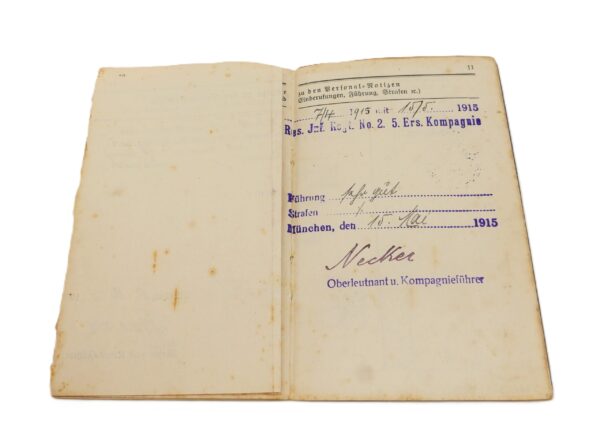 11
zu den Personal-Notizen
(Einberufungen, Führung, Strafen ꝛc.)
7/4 1915 mit 15/5. 1915
Res. Inf. Regt. No. 2. 5. Ers. Kompagnie
Führung sehr gut
Strafen
München, den 15. Mai 1915
Necker
Oberleutnant u. Kompagnieführer